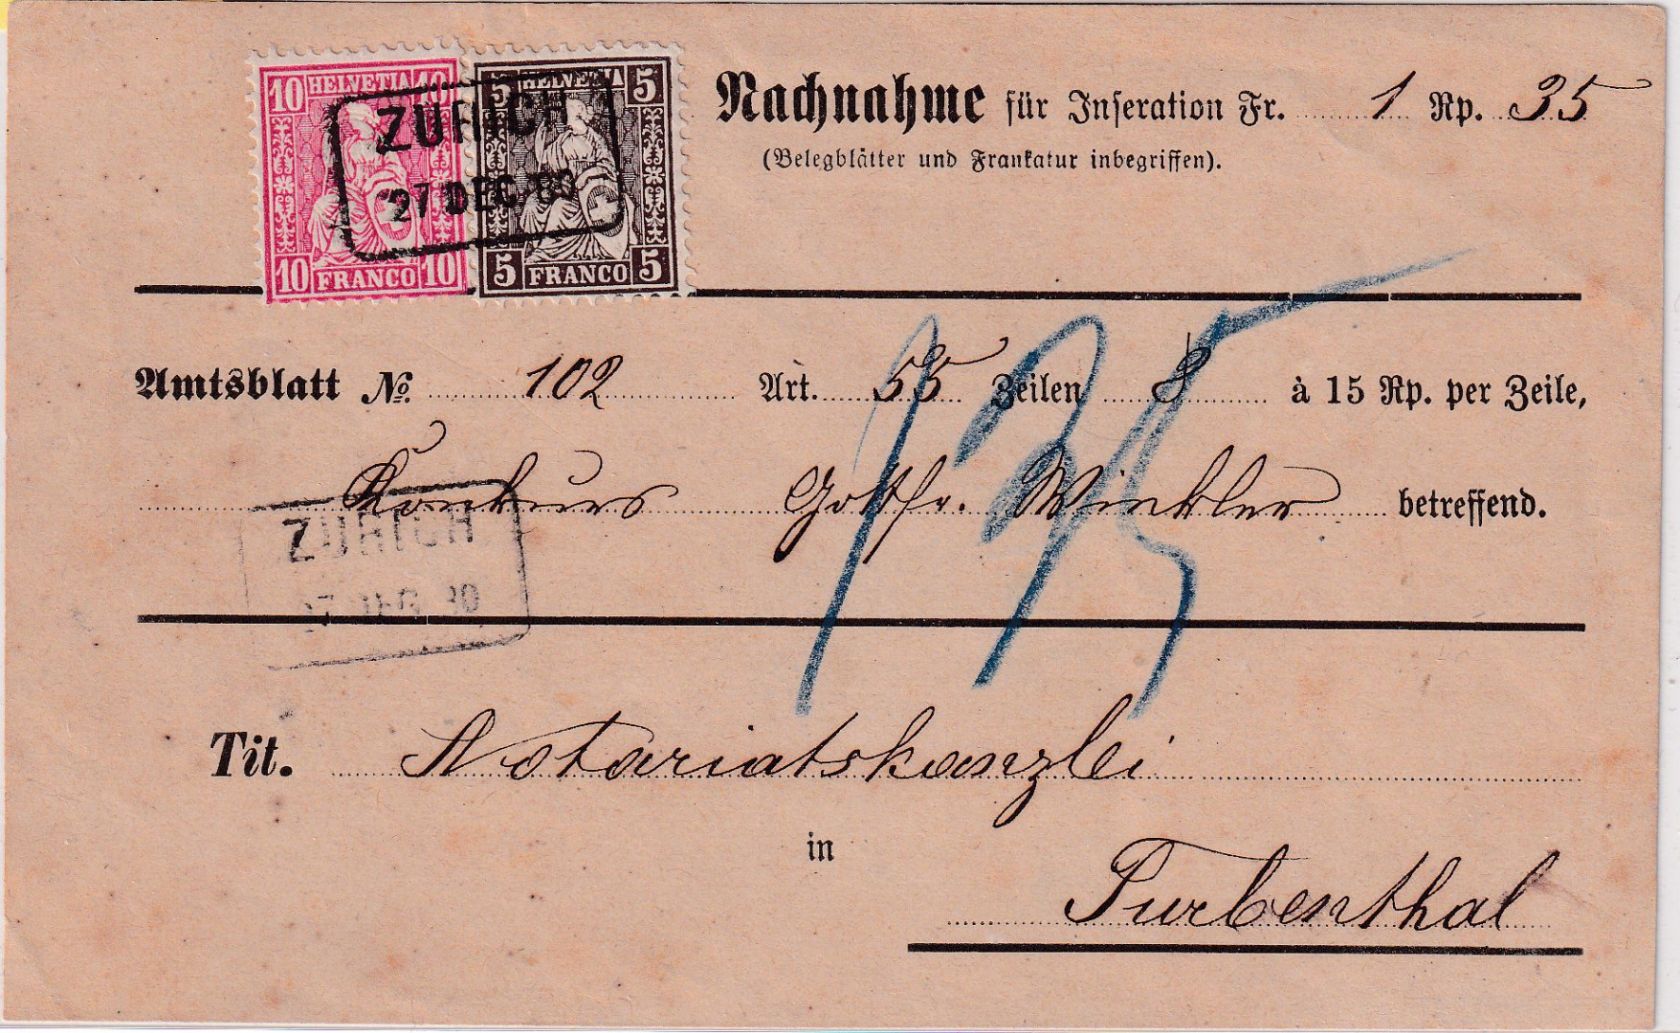 10 HELVETIA 10
10 FRANCO 10
5 HELVETIA 5
5 FRANCO 5
ZÜRICH
27 DEC 80
Nachnahme für Inseration Fr. 1 Rp. 35
(Belegblätter und Frankatur inbegriffen).
Amtsblatt No. 102 Art. 55 Zeilen 8 à 15 Rp. per Zeile,
135
Konkurs Gottfr. Winkler betreffend.
ZÜRICH
27 DEC 80
Tit. Notariatskanzlei
in
Turbenthal